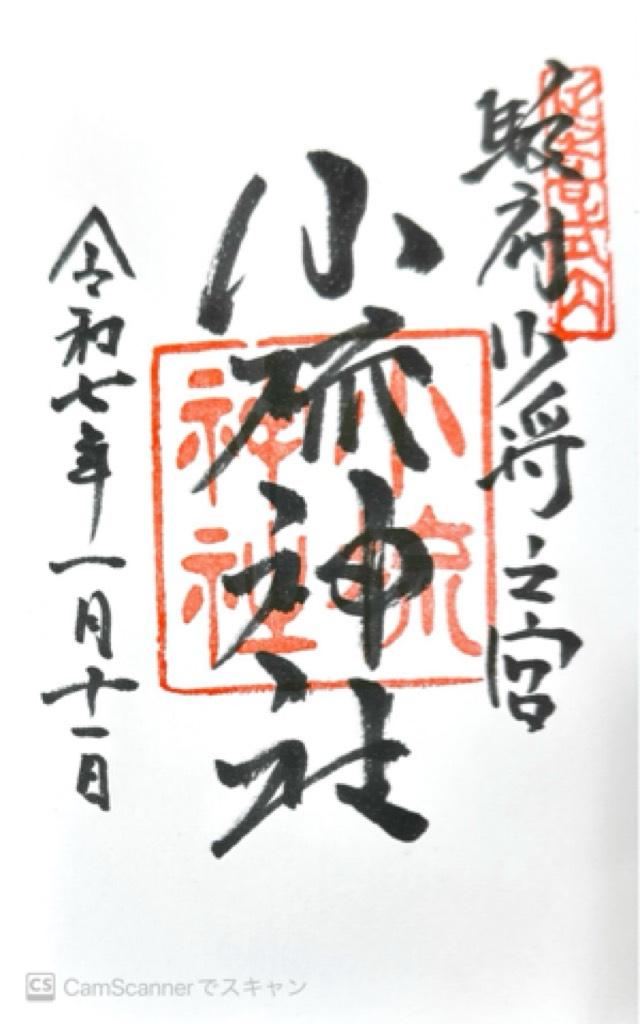 延喜式内
駿府少将之宮
小梳神社
小梳神社
令和七年一月十一日
CS CamScanner でスキャン